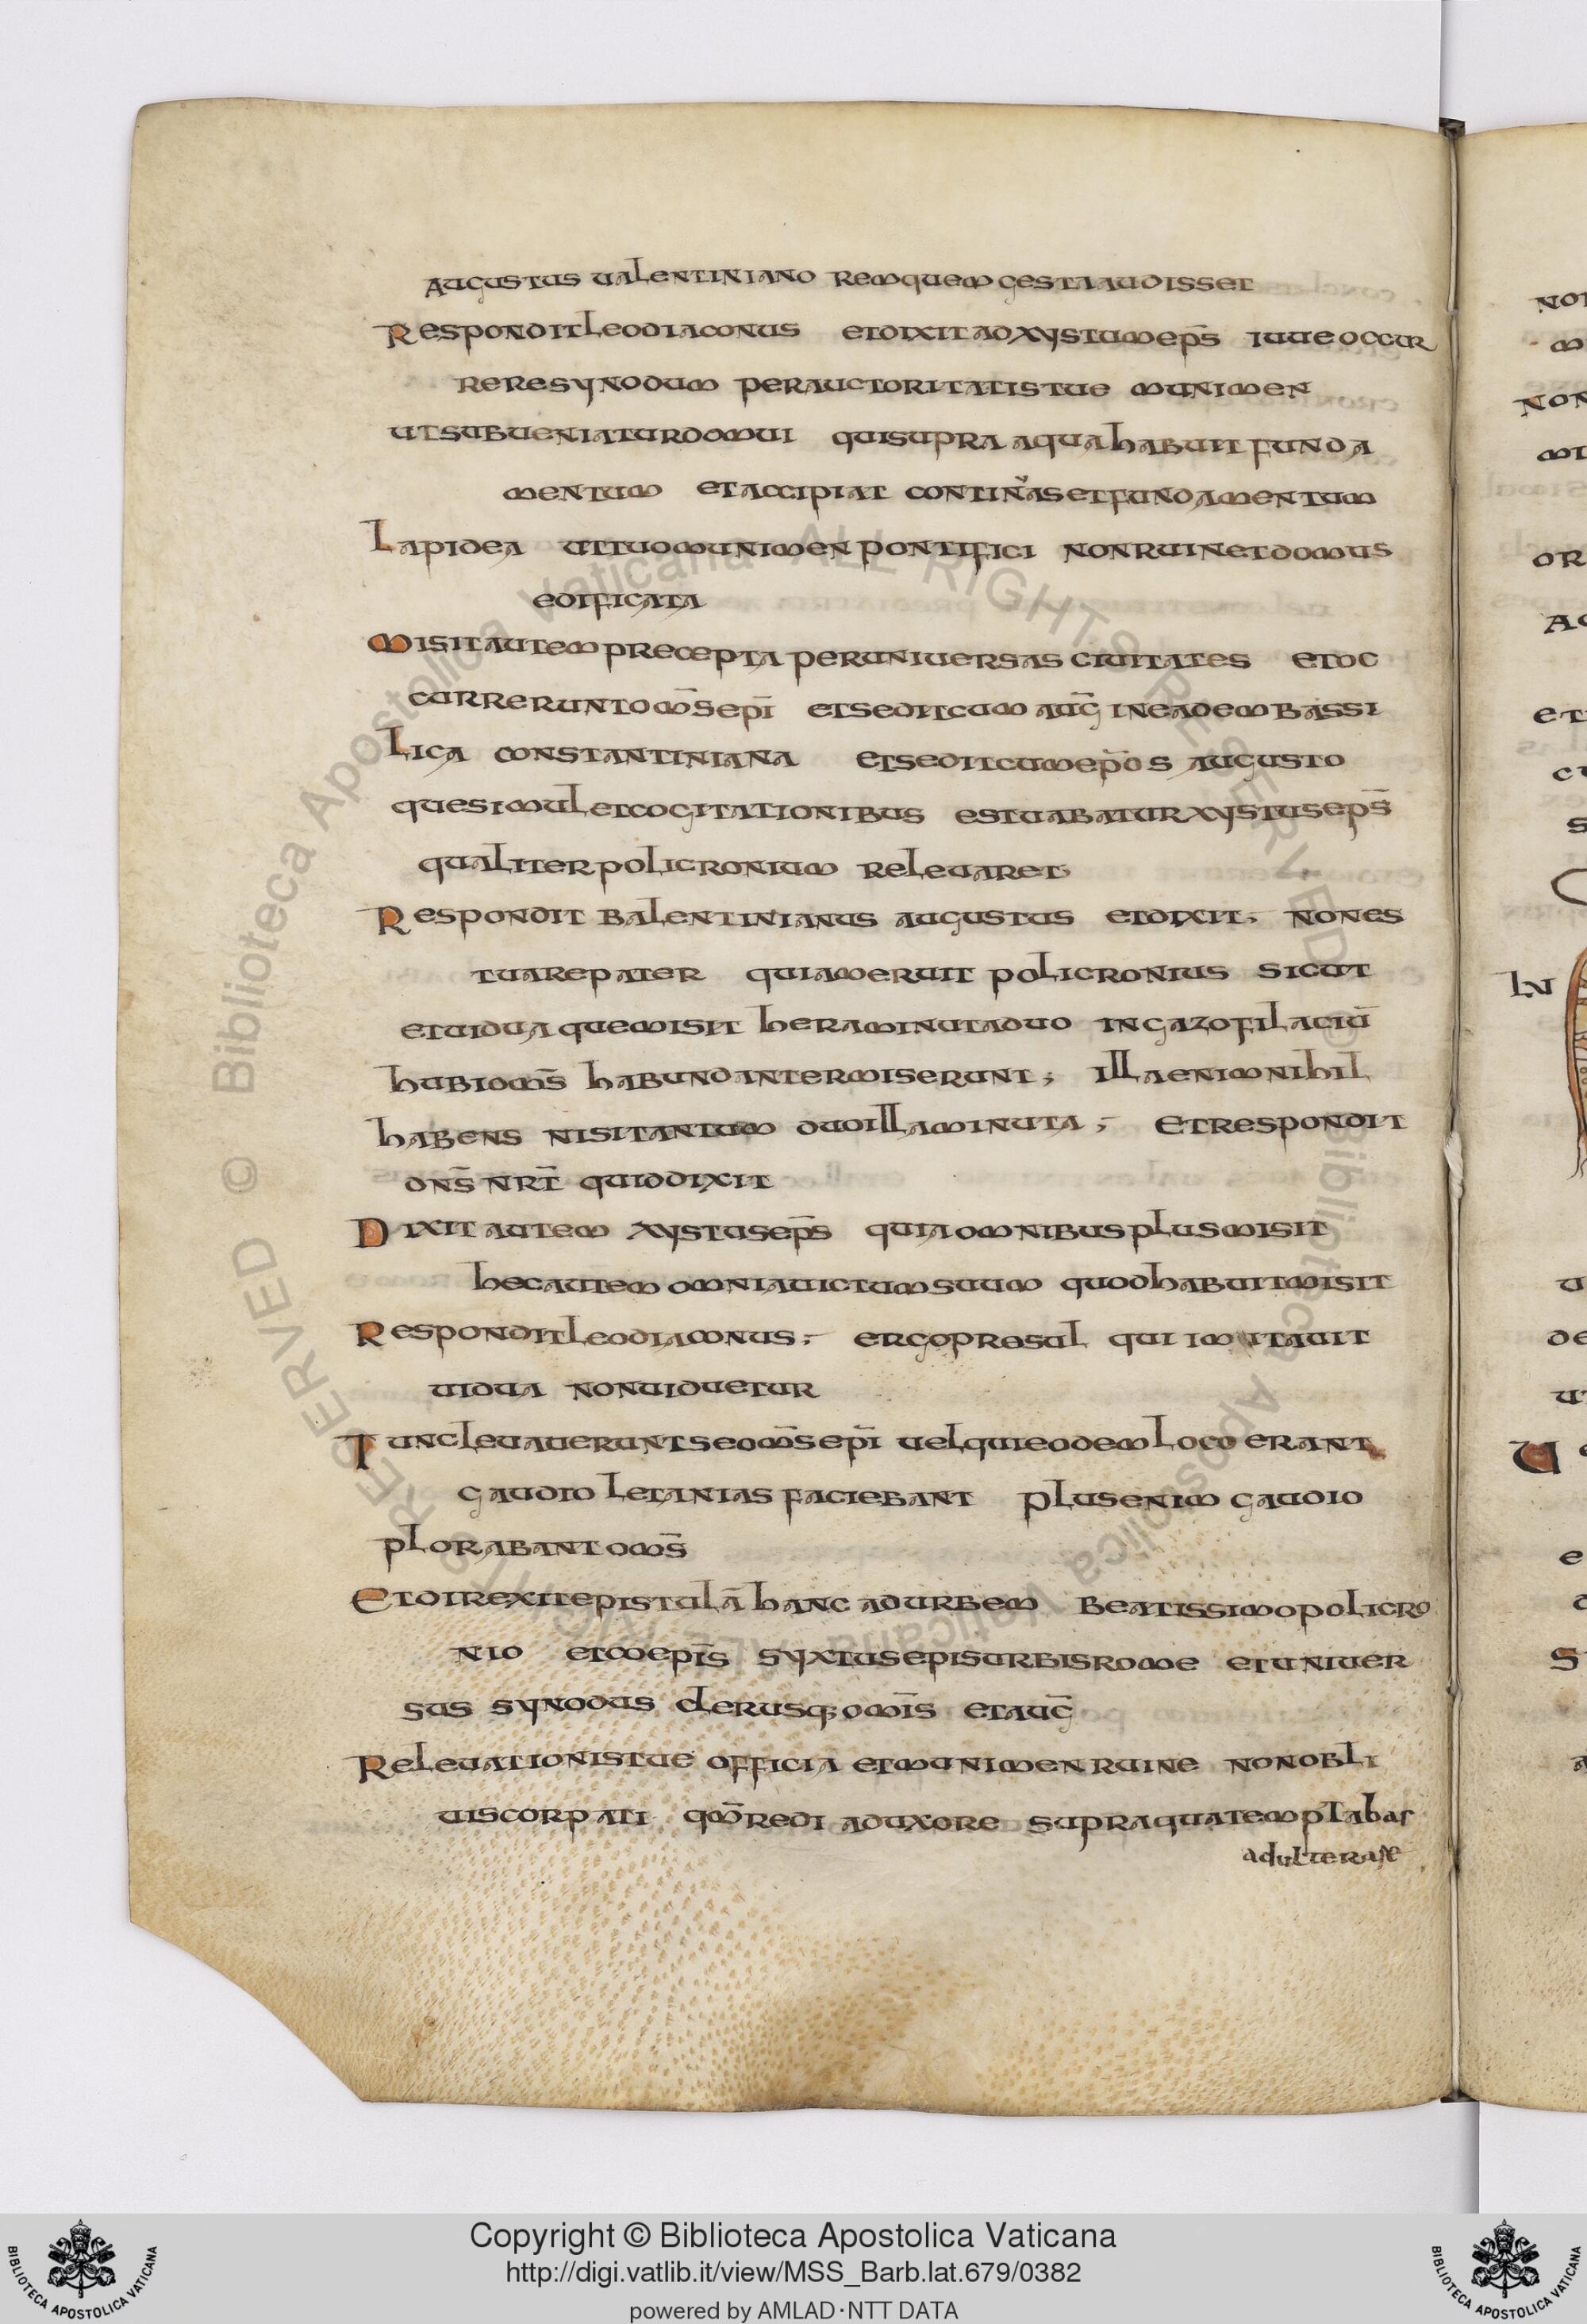 augustus ualentiniano remquem gesta audisset
Respondit leo diaconus et dixit ad xystum ep̄s iuue occur
rere synodum per auctoritatis tue munimen
ut subueniatur domui qui supra aqua habuit funda
mentum et accipiat contin̄as et fundamentum
Lapidea ut tuo munimen pontifici non ruinet domus
edificata
Misit autem precepta per uniuersas ciuitates et oc
currerunt om̄s ep̄i et sedit cum auḡ in eadem bassi
Lica constantiniana et sedit cum ep̄os augusto
que simul et cogitationibus estuabatur xystus ep̄s
qualiter policronium releuaret
Respondit balentinianus augustus et dixit; non es
tuare pater quia meruit policronius sicut
et uidua que misit hera minuta duo in gazofilaciū
hubi om̄s habundanter miserunt; illa enim nihil
habens nisi tantum duo illa minuta; Et respondit
dn̄s nr̄i quid dixit
Dixit autem xystus ep̄s quia omnibus plus misit
hec autem omnia uictum suum quod habuit misit
Respondit leo diaconus; ergo presul qui imitauit
uidua non uiduetur
Tunc leuauerunt se om̄s ep̄i uel qui eodem loco erant
gaudio letanias faciebant plus enim gaudio
plorabant om̄s
Et direxit epistulā hanc ad urbem beatissimo policro
nio et coep̄is syxtus epis urbis rome et uniuer
sus synodus clerusq; omīs et auḡ
Releuationis tue officia et munimen ruine non obli
uiscor pati qm̄ redi ad uxore supra qua temptabar
adulterase
nor
non
mi
or
et
s
IN
u
de
U
e
Copyright © Biblioteca Apostolica Vaticana
http://digi.vatlib.it/view/MSS_Barb.lat.679/0382
powered by AMLAD·NTT DATA
BIBLIOTECA APOSTOLICA VATICANA
BIBLIOTECA APOSTOLICA VATICANA
© Biblioteca Apostolica Vaticana ALL RIGHTS RESERVED © Biblioteca Apostolica Vaticana ALL RIGHTS RESERVED